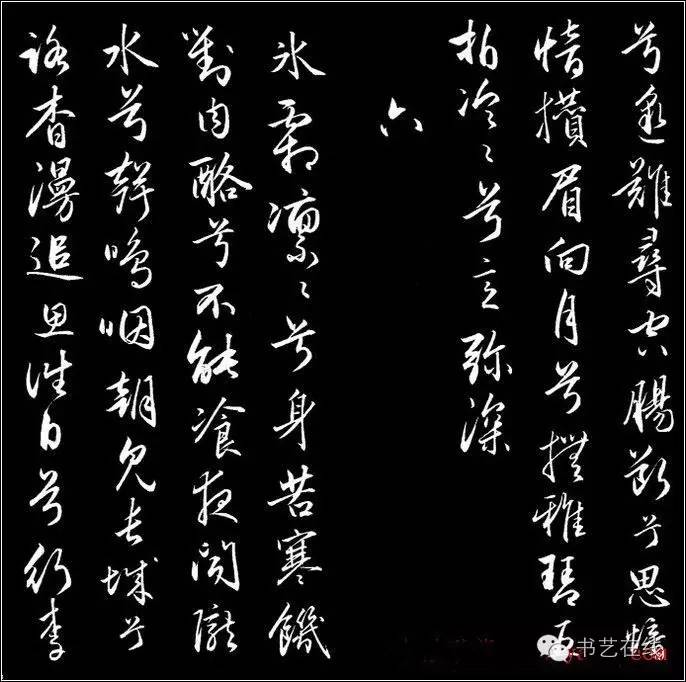 兮邈難尋空腸斷兮思愔
愔攢眉向月兮撫雅琴五
拍泠々兮意弥深
六
冰霜凛々兮身苦寒饑
對肉酪兮不能飡夜聞隴
水兮聲嗚咽朝見長城兮
路杳漫追思往日兮行李
书艺在线